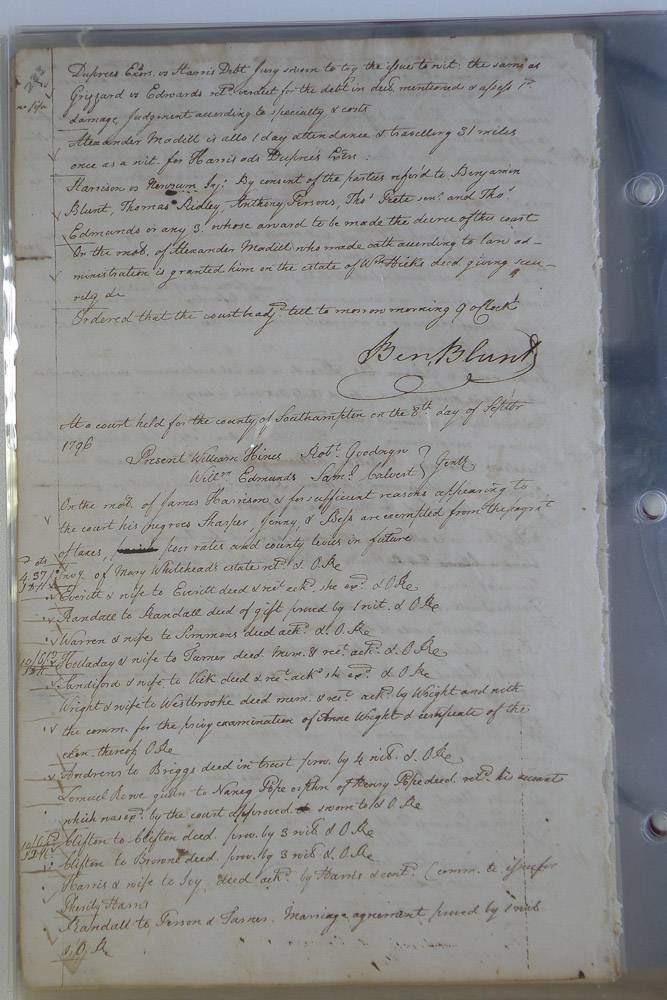 Duprees Exors. vs Harris Debt Jury sworn to try the issue to wit: the same as
Grizzard vs Edwards retd. verdict for the debt in decl. mentioned & assess 1d.
damage, judgement according to specialty & costs
Alexander Madill is allo 1 day attendance & travelling 31 miles
once as a wit. for Harris ads Dupree's Exors.
Harrison vs Newsum Inj: By consent of the parties refer'd to Benjamin
Blunt, Thomas Ridley, Anthony Persons, Thos. Peete senr. and Thos.
Edmunds or any 3. whose award to be made the decree of the court
On the mot. of Alexander Madill who made oath according to law ad-
ministration is granted him on the estate of Wm. Hicks decd giving secu-
rity &c
Ordered that the court be adjd. till to morrow morning 9 oClock
Ben. Blunt
At a court held for the county of Southampton on the 8th day of Septbr
1796
Present William Hines Robt. Goodwyn
Willm Edmunds Saml. Calvert } Gentl.
On the mot. of James Harrison & for sufficient reasons appearing to
the court his negroes Sharper, Jenny, & Bess are exempted from the paymt.
of taxes, poor rates and county levies in future
Invy. of Mary Whitehead's estate retd. & O.Re
Everitt & wife to Everitt deed & rect. ackd. she exd. & O Re
Randall to Randall deed of gift proved by 1 wit. & O Re
Warren & wife to Simmons deed ackd. & O Re
Holladay & wife to Turner deed mem. & rect. ackd. & O Re
Sandiford & wife to Vick deed & rect. ackd. she exd. & O Re
Wright & wife to Westbrooke deed mem. & rect. ackd. by Wright and with
the comm. for the privy examination of Anne Wright & certificate of the
exon. thereof O Re
Andrews to Briggs deed in trust prov. by 4 wits. & O Re
Lemuel Rowe gudn to Nancy Pope orphn of Henry Pope decd. retd. his account
which was exd. by the court approved sworn to & O Re
Clifton to Clifton deed. prov. by 3 wits & O Re
Clifton to Browne deed. prov. by 3 wits & O. Re
Harris & wife to Ivy deed ackd. by Harris & contd. (comm. to issue for
Cherity Harris
Randall to Person & Turner. Marriage agreement proved by 1 wit
& O. Re